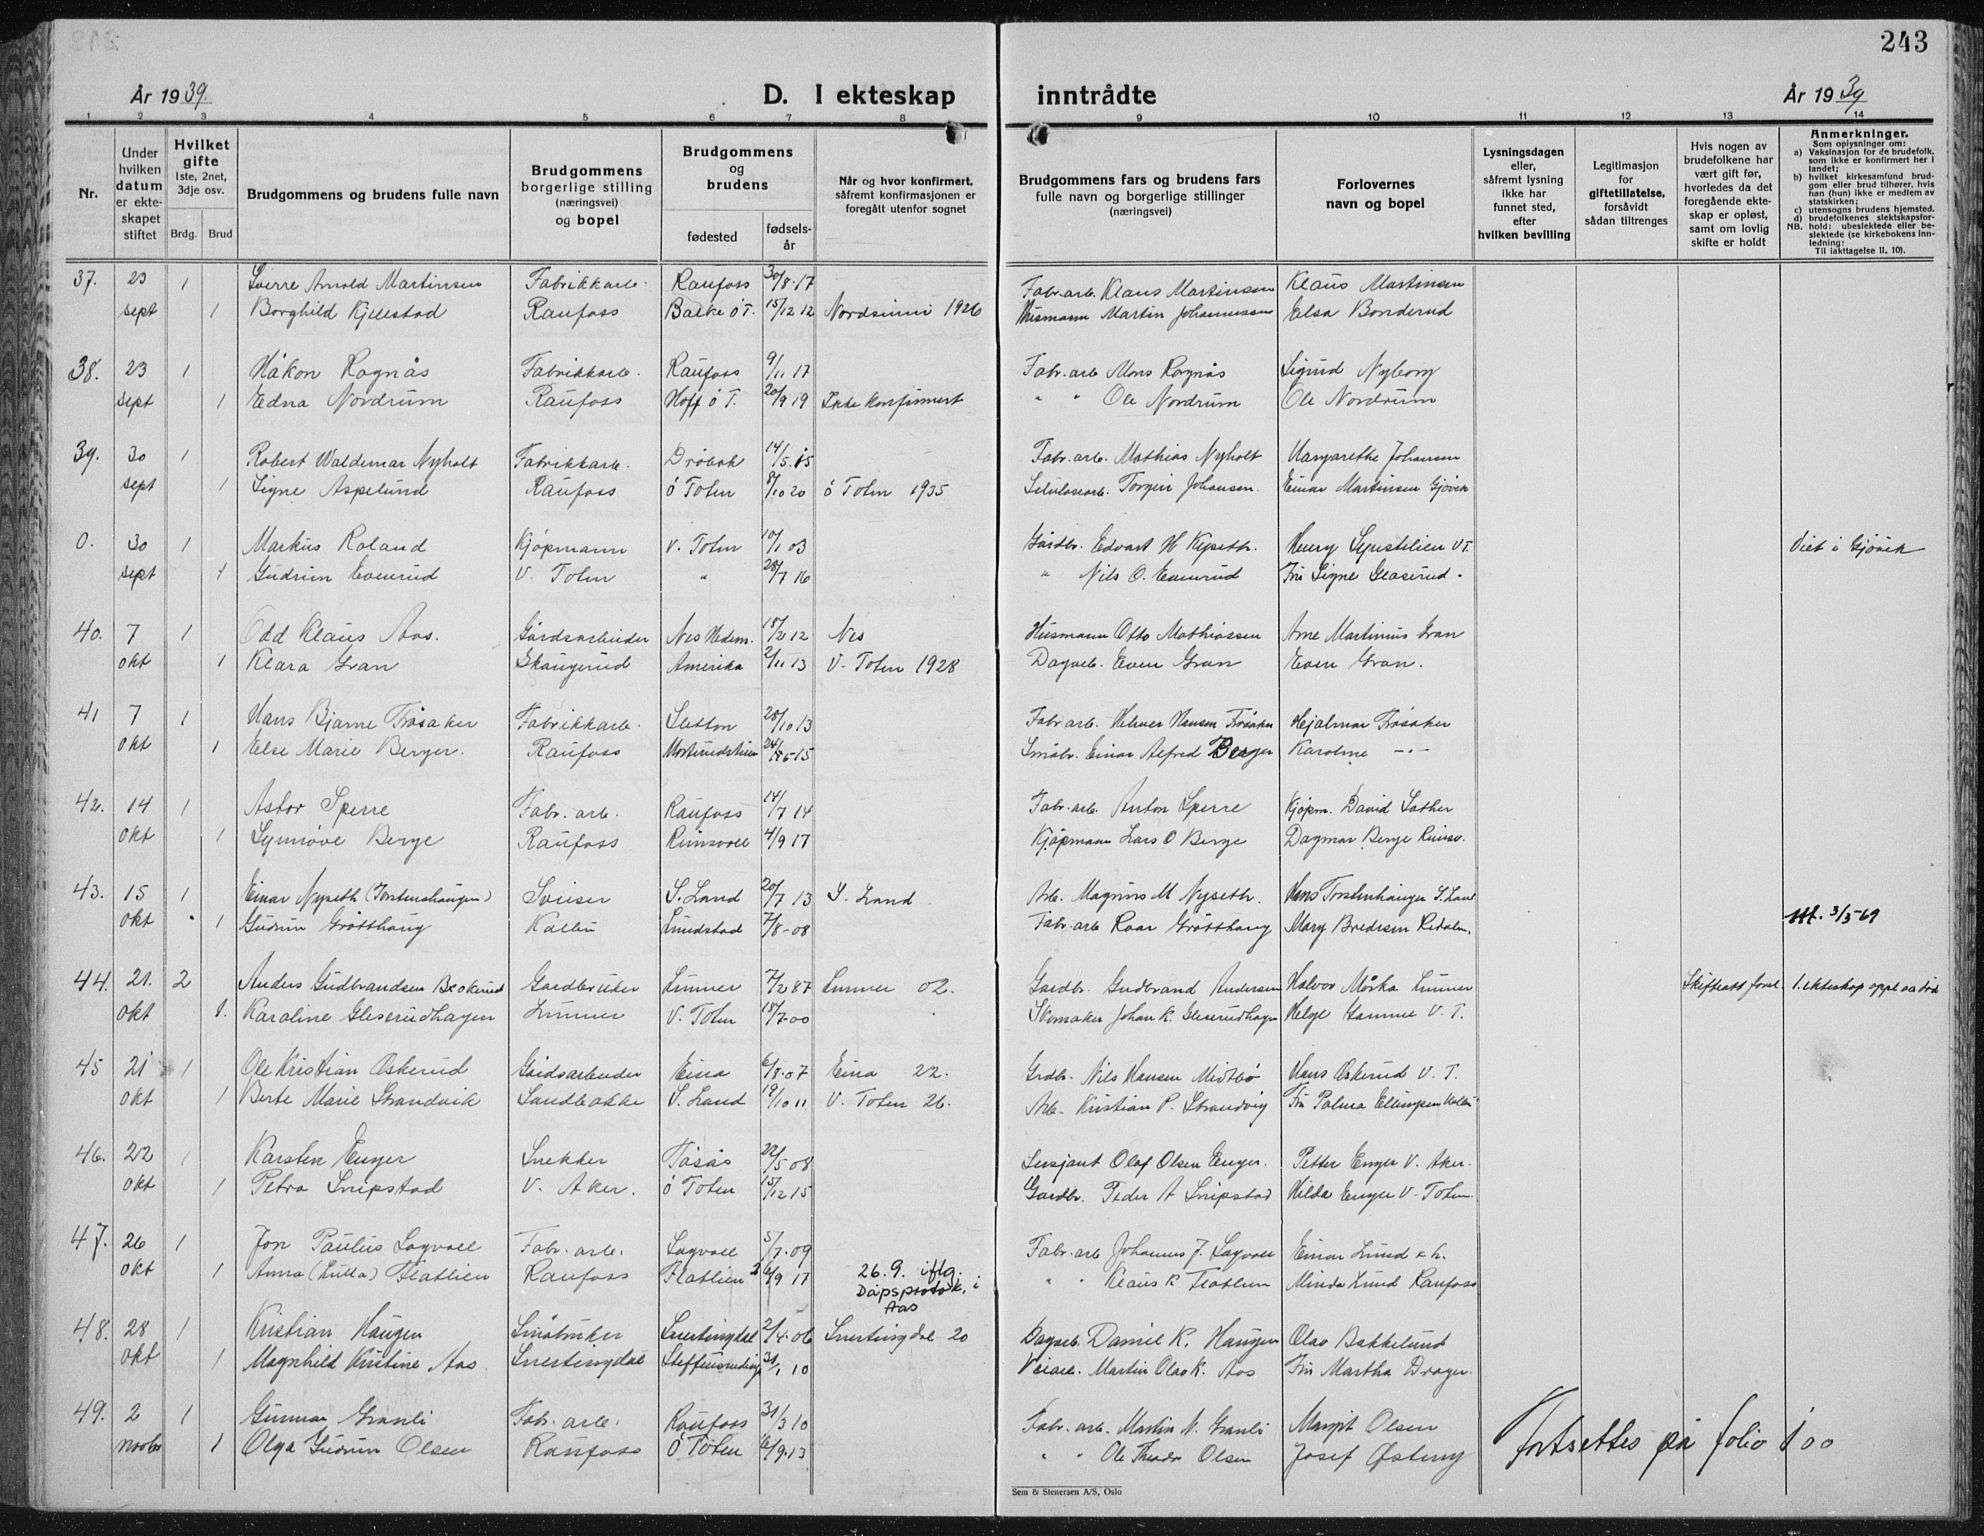 243
År 1939.
D. I ekteskap inntrådte
År 1939
1 2 3 4 5 6 7 8 9 10 11 12 13 14
Nr.
Under hvilken datum er ekteskapet stiftet
Hvilket gifte
1ste, 2net, 3dje osv.
Brdg. Brud
Brudgommens og brudens fulle navn
Brudgommens borgerlige stilling (næringsvei) og bopel
Brudgommens og brudens
fødested
fødselsår
Når og hvor konfirmert, såfremt konfirmasjonen er foregått utenfor sognet
Brudgommens fars og brudens fars fulle navn og borgerlige stillinger (næringsvei)
Forlovernes navn og bopel
Lysningsdagen eller, såfremt lysning ikke har funnet sted, efter hvilken bevilling
Legitimasjon for giftetillatelse, forsåvidt sådan tiltrenges
Hvis nogen av brudefolkene har vært gift før, hvorledes da det foregående ekteskap er opløst, samt om lovlig skifte er holdt
Anmerkninger.
Som oplysninger om:
a) Vaksinasjon for de brudefolk, som ikke er konfirmert her i landet;
b) hvilket kirkesamfund brudgom eller brud tilhører, hvis han (hun) ikke er medlem av statskirken;
c) utensogns brudens hjemsted.
d) brudefolkenes slektskapsforhold: ubeslektede eller beslektede (se kirkebokens innledning:
NB.
Til iakttagelse II. 10).
37. 23 1 Sverre Arnold Martinsen Fabrikkarb. Raufoss 30/8-17 Fabr.arb. Klaus Martinsen Klaus Martinsen
sept 1 Borghild Kjelestad Raufoss Balke ØT. 15/12 12 Nordsinni 1926 Husmann Martin Johannessen Elsa Bonderud
38. 23 1 Håkon Rognås Fabrikkarb. Raufoss 9/11 17 Fabr.arb. Mons Rognås Sigurd Nyborg
sept 1 Edna Nordrum Raufoss Hoff Ø T. 20/9 19 Ikke konfirmert " " Ole Nordrum Ole Nordrum
39. 30 1 Robert Waldemar Nyholt Fabrikkarb. Drøbak 14/5 15 Fabr.arb. Mathias Nyholt Margarethe Johansen
sept 1 Signe Aspelund Raufoss Ø Toten 8/10 20 Ø Toten 1935 Celulosearb. Torgeir Johansen. Einar Martinsen Gjøvik
0. 30 1 Markus Roland Kjøpmann V. Toten 10/1 03 Gårdbr. Edvart H Kipseth. Henry Sejustilien V T. Viet i Gjøvik
sept 1 Gudrun Evenrud V. Toten " 28/7 16 " Nils O. Evenrud Fru Signe Glaserud "
40. 7 1 Odd Klaus Aas. Gårdsarbeider Nes Hedem. 18/2 12 Nes Husmann Otto Mathiassen Arne Martinius Gran
okt 1 Klara Gran Skaugerud Amerika 2/11 13 V. Toten 1928 Dagarb. Even Gran Even Gran.
41 7 1 Hans Bjarne Frøsaker Fabrikkarb. Sletton 20/10 13 Fabr.arb. Helmer Hansen Frøsaker Hjalmar Frøsaker
okt 1 Else Marie Berger. Raufoss 24/ 15 Småbr. Einar Alfred Berger Karoline -"-
42. 14 1 Astor Sperre Fabr. arb. Raufoss 14/7 14 Fabr. arb. Anton Sperre Kjøpm. David Sather
okt 1 Synnøve Berge Raufoss Reinsvoll 4/9 17 Kjøpmann Lars O Berge Dagmar Berge Reinsv.
43. 15 1 Einar Nyseth (Torstenshaugen) Sveiser S. Land 20/7 13 S. Land Arb. Magnus M Nyseth. Hans Torstenhaugen S. Land
okt 1 Gudrun Gråtthaug Kolbu Lundstad 7/8-08 Fabr.arb Roar Gråtthaug Mary Bredesen Redalen. 3/5-69
44. 21. 2 Anders Gudbrandsen Beokerud Gardbruker Lunner 7/2 87 Lunner 02. Gardbr. Gudbrand Andersen Halvor Morka Lunner Skifteatt forel. 1. ekteskap oppl. aa død
okt 1. Karoline Gleserudhagen Lunner V. Toten 18/7-00 Skomaker Johan K. Gleserudhagen Helge Hamme V. T.
45 21 1 Ole Kristian Øskerud Gaidsarbeider Eina 6/8-07 Eina 22. Grdbr. Nils Hansen Midtbø Hans Øskerud V. T.
okt 1 Berte Marie Strandvik Landbakke S. Land 19/10 11 V. Toten 26. Arb. Kristian P. Strandvig Fru Palma Ellingsen Kolbu
46. 22 1 Karsten Enger Snekker Tåsås 22/5 08 Sersjant Olaf Olsen Enger. Petter Enger V. Aker.
okt 1 Petra Snipstad V. Aker. Ø Toten 15/12 15 Gardbr. Peder A Snipstad Hilda Enger V. Toten
47. 26 1 Jon Paulus Sagvoll Fabr. arb. Sagvoll 5/7-09 Fabr. arb Johannes J. Sagvoll Einar Lund e.h.
okt 1 Anna (Lulla) Flatlien Raufoss Flatlien 26/9 17 26.9. iflg. Dåpsprotok. i Aas " " Klaus K Flatlien Minda Lund Raufoss
48. 28 1 Kristian Haugen Småbruker Snertingdal 2/4-06 Snertingdal 20 Dagarb. Daniel K. Haugen Olav Bakkelund
okt 1 Magnhild Kristine Aas. Snertingdal 31/1 10 Veiarb. Martin Olao K. Aas Fru Martha Drager.
49. 2 1 Gunnar Granli Fabr. arb. Raufoss 31/3 10 Fabr. arb. Martin N. Granli Margit Olsen
novbr 1 Olga Gudrun Olsen Raufoss Ø Toten 6/9-13 " " Ole Theodor Olsen Josef Østeng
Fortsettes på folio 100
Sem & Stenersen A/S, Oslo